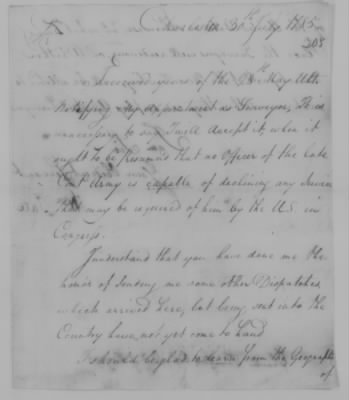 30th July 1785
208
I received yours of the 28th May Ulto
Notifying my appointment as Surveyor, It is
unnecessary to say I will accept it, when it
ought to be presumed that no Officer of the late
Contl Army is capable of declining any Service
that may be required of him by the U.S. in
Congress.
I understand that you have done me the
honor of sending me some other Dispatches
which arrived here, but being sent into the
Country have not yet come to hand
I should be glad to learn from the Geographer
of